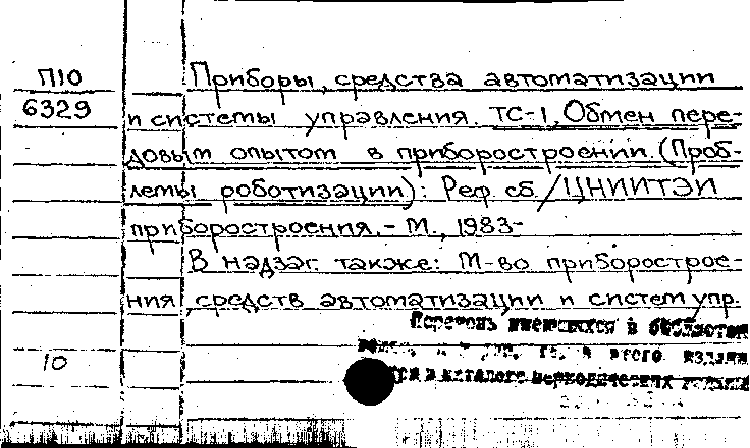 П10
6329
Приборы, средства автоматизации
и системы управления. ТС-1, Обмен пере-
довым опытом в приборостроении. (Проб-
лемы роботизации): Реф. сб. / ЦНИИТЭИ
приборостроения. - М., 1983-
В надзаг. также: М-во приборострое-
ния, средств автоматизации и систем упр.
Перечень имеющихся в библиотеке
этого издания
в каталоге периодических изданий
10